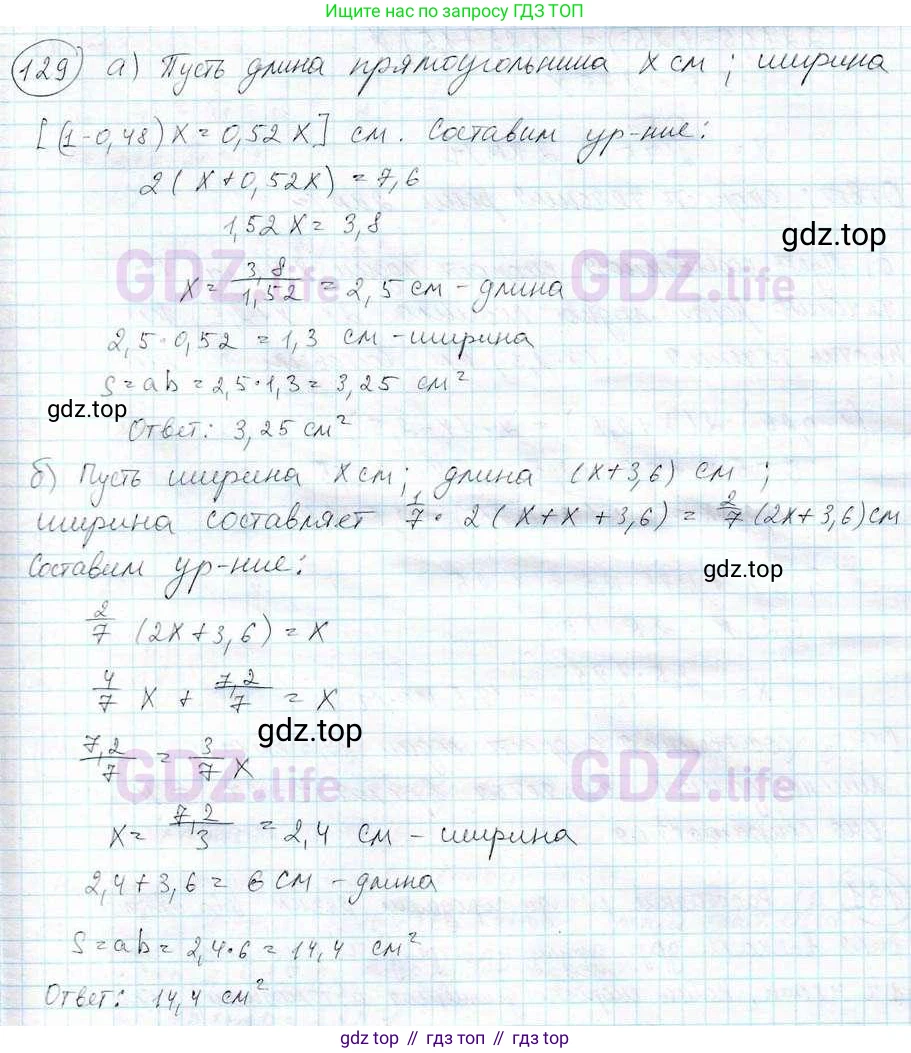 Ищите нас по запросу ГДЗ ТОП
129 а) Пусть длина прямоугольника x см; ширина
[(1-0,48)x = 0,52x] см. Составим ур-ние:
2(x+0,52x) = 7,6
1,52x = 3,8
gdz.top
GDZ.life GDZ.life
x = 3,8/1,52 = 2,5 см - длина
2,5·0,52 = 1,3 см - ширина
S = ab = 2,5·1,3 = 3,25 см²
gdz.top
Ответ: 3,25 см²
б) Пусть ширина x см; длина (x+3,6) см;
ширина составляет 1/7 · 2(x+x+3,6) = 2/7 (2x+3,6) см
Составим ур-ние:
gdz.top
2/7 (2x+3,6) = x
4/7 x + 7,2/7 = x
gdz.top
7,2/7 = 3/7 x
GDZ.life GDZ.life
x = 7,2/3 = 2,4 см - ширина
2,4+3,6 = 6 см - длина
S = ab = 2,4·6 = 14,4 см²
Ответ: 14,4 см²
gdz.top // гдз топ // gdz.top